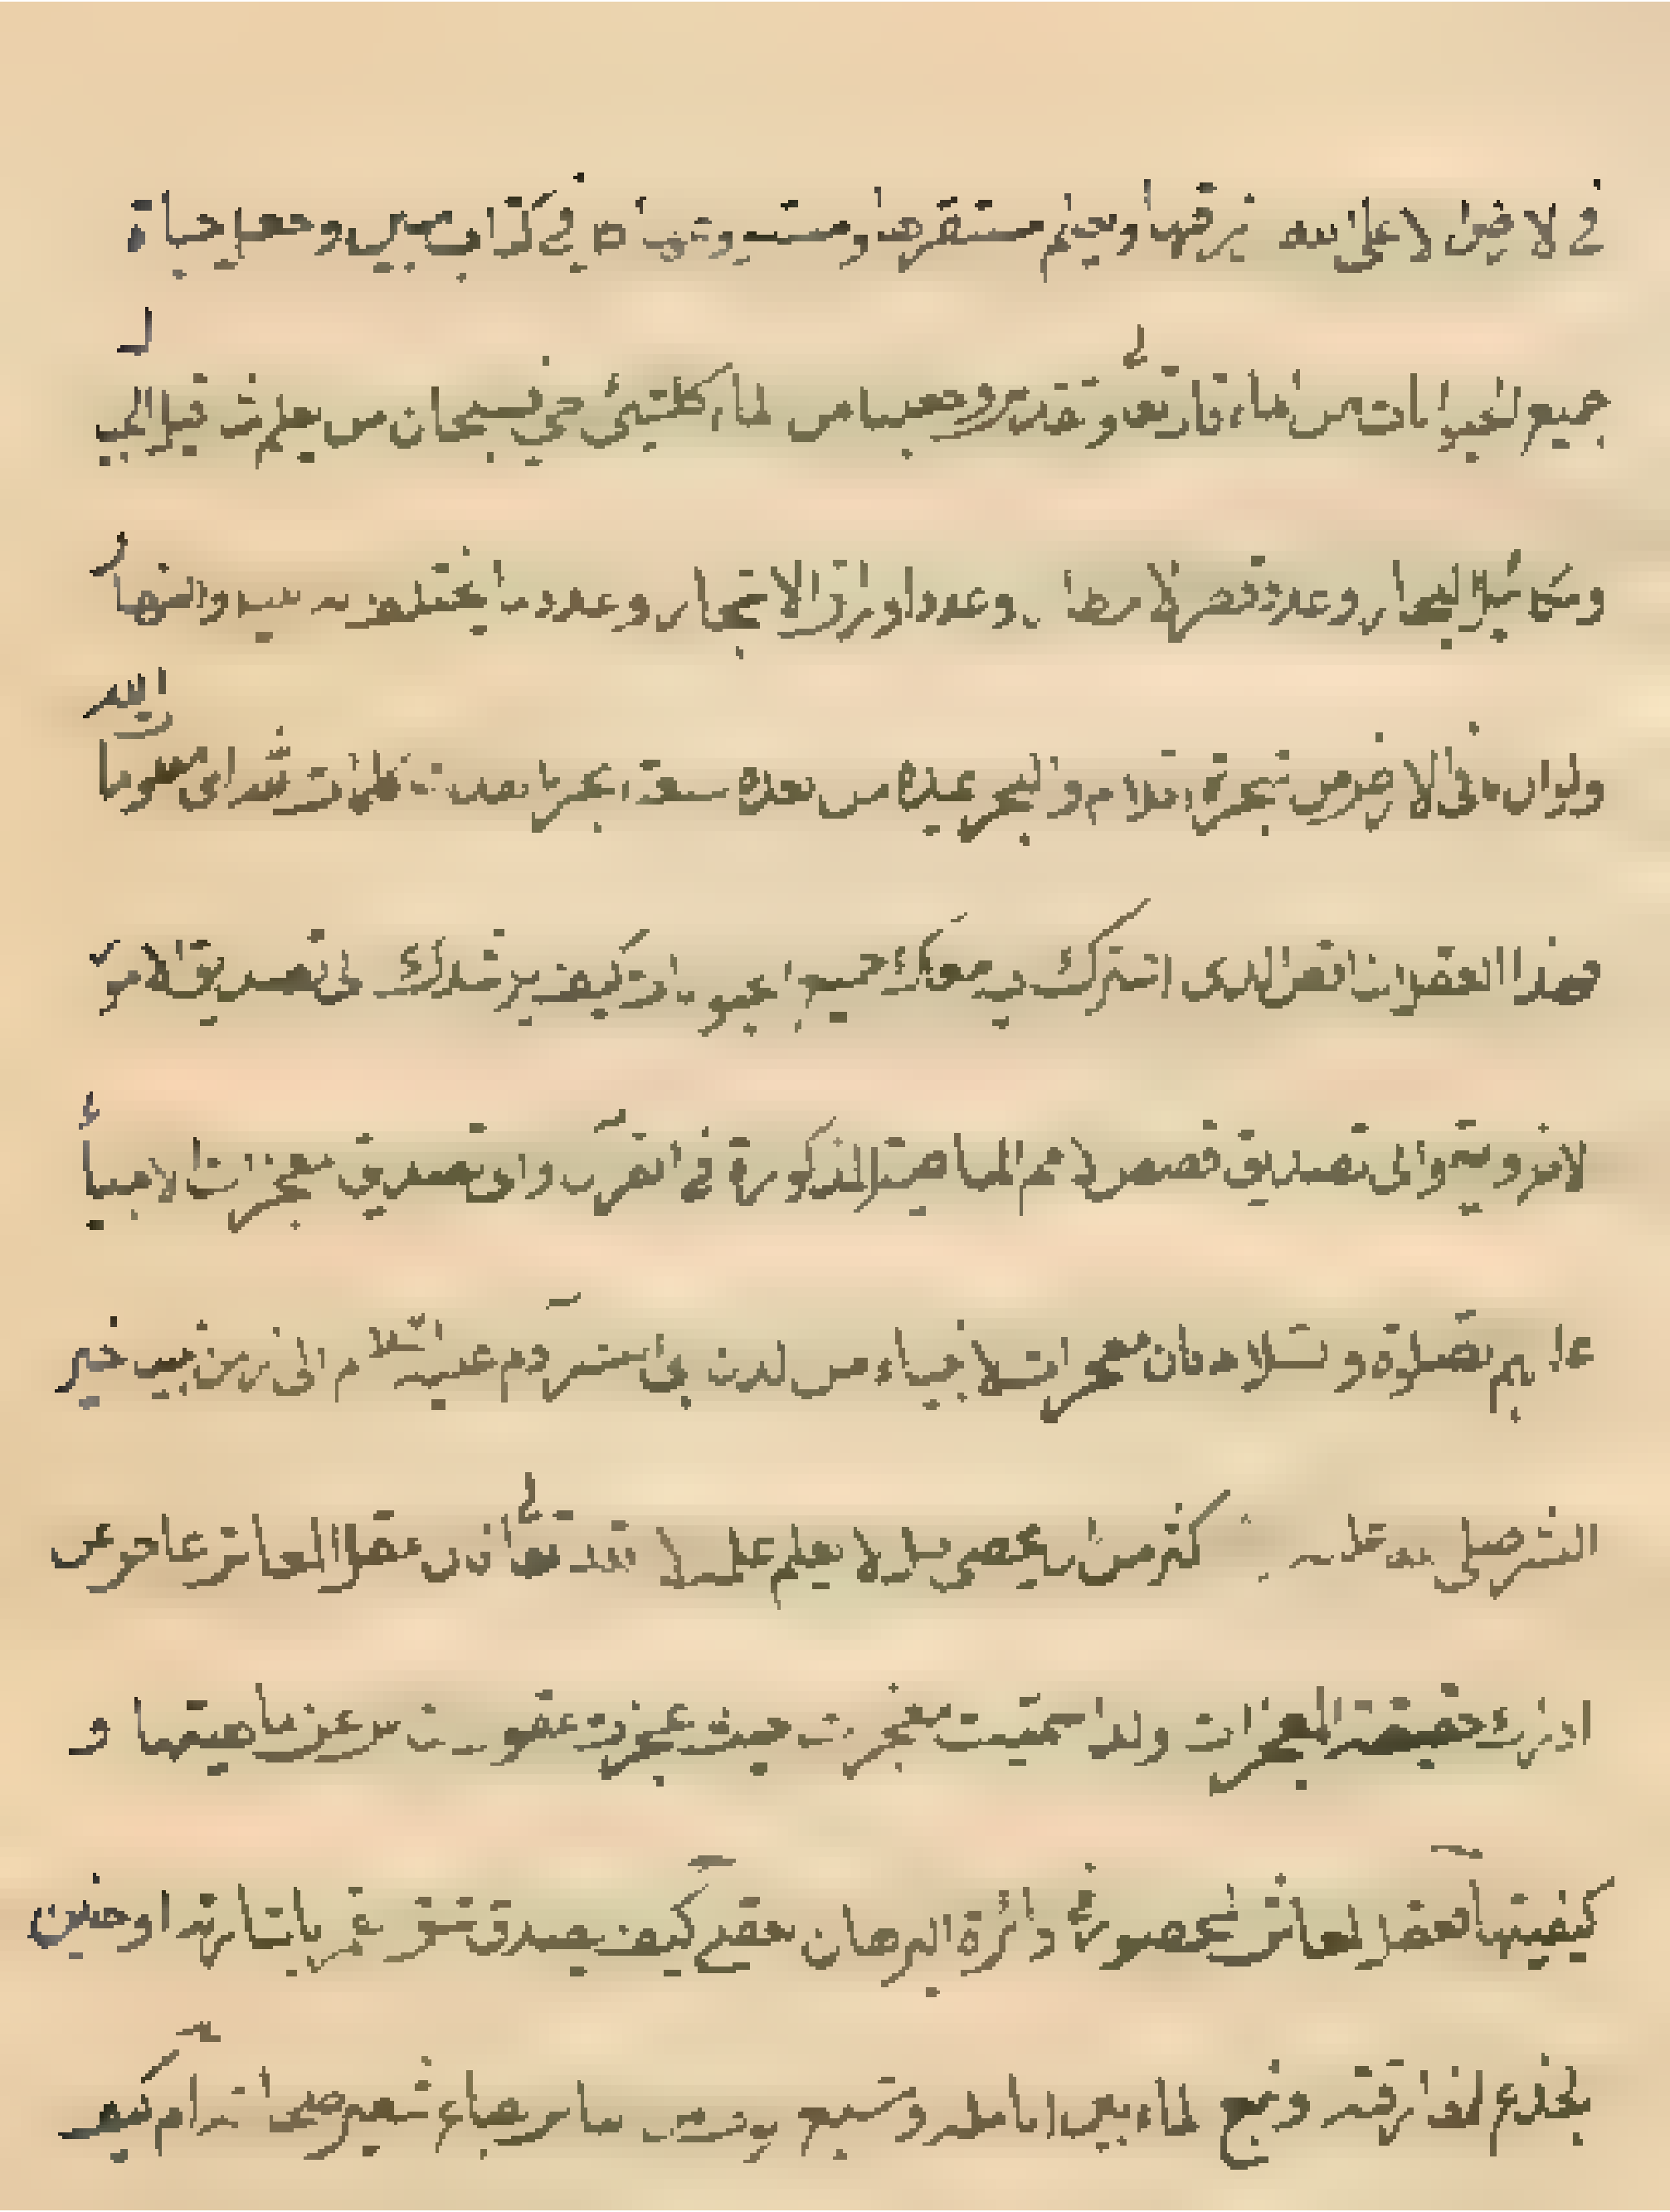 في الارض الا على الله رزقها ويعلم مستقرها ومستودعها في كتاب مبين وجعل حياة
جميع الحيوانات من الماء قال تعالى وتقدس وجعلنا من الماء كل شيئ حي فسبحان من يعلم مثاقيل الجبال
ومكائيل البحار وعدد قطر الامطار وعدد اوراق الاشجار وعدد ما يختلف والنهار
ولو ان ما في الارض من شجرة اقلام والبحر يمده من بعده سبعة ابحر ما نفدت كلمات الله اي معلومات الله
فهذا العقل الناقص الذي اشترك فيه معك جميع الحيوانات كيف يرشدك الى تصديق الامور
الى تصديق قصص الامم الماضية المذكورة في القرآن والى تصديق معجزات الانبياء
عليهم الصلوة والسلام فان معجزات الانبياء من لدن ابي البشر آدم عليه السلام الى زمن نبينا خير
البشر صلى الله عليه اكثر من ان يحصى بل لا يعلم عددها الا الله تعالى فان عقل المعاش عاجز عن
ادراك حقيقة المعجزات ولذا سميت معجزات حيث عجزت عقول عن ماهيتها و
كيفيتها فعقل المعاش المحصور في دائرة البرهان العقلي كيف يصدق شق القمر باشارتها وحنين
الجذع لمفارقته ونبع الماء بين انامله وتسبيع من صاع شعير ام كيف